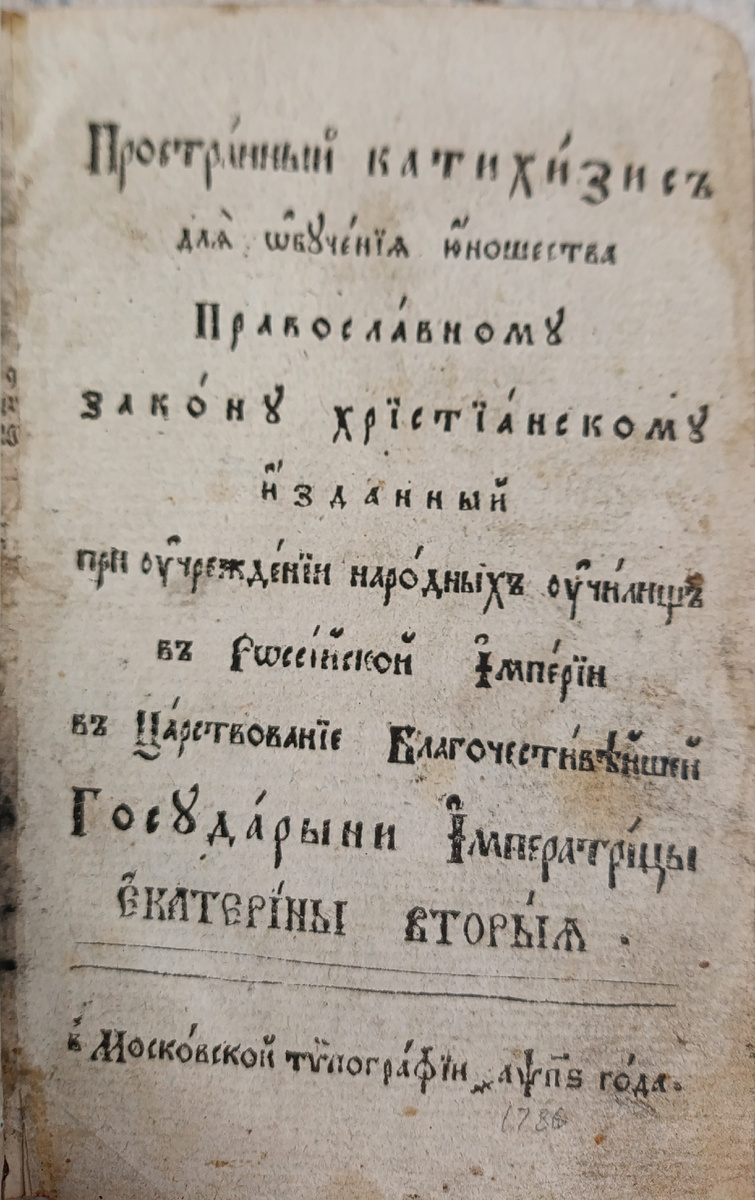 Простра́нный катихи́зисъ
для̀ ѡ҆буче́нїѧ ю҆́ношества
Правосла́вному
зако́нꙋ хрїстїа́нскомꙋ
и҆́зданный
при оу҆чрежде́нїи наро́дныхъ оу҆чи́лищъ
въ Рѡссі́йской І҆мпе́рїи
въ Ца́рствованїе Благочести́вѣйшей
Госꙋда́рыни І҆мператрі́цы
Є҆КАТЕРІ́НЫ ВТОРЫ́Ѧ .
в̾ Моско́вской тѷпогра́фїи ҂аѱп҃ѕ го́да.
1786